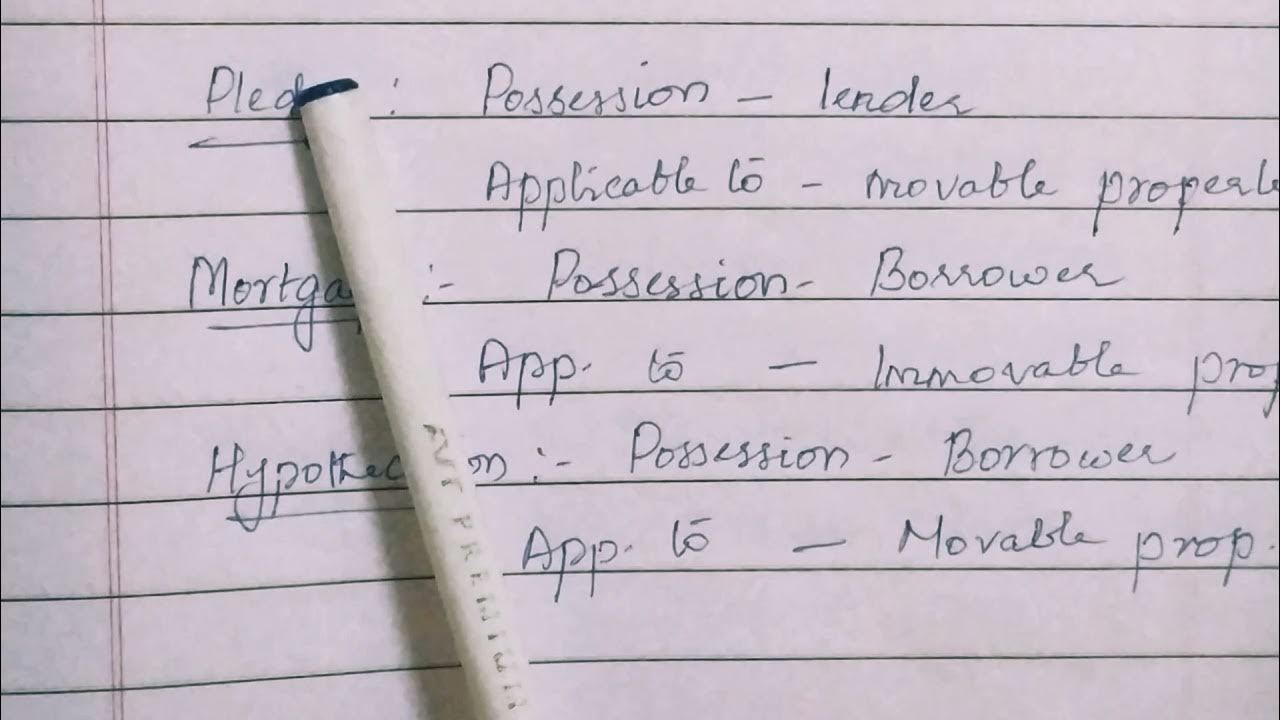 Pled : Possession - lender
Applicable to - movable propert
Mortga :- Possession - Borrower
App. to - Immovable prop
Hypothec on :- Possession - Borrower
App. to - Movable prop.
AVT PREMIUM